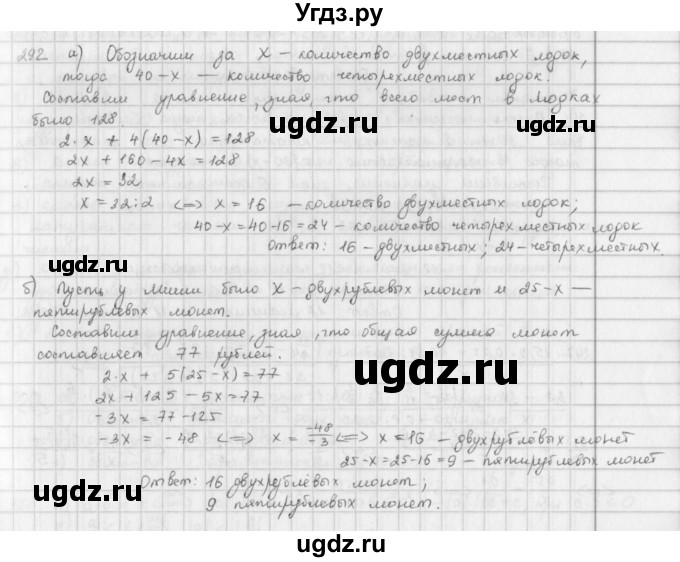 Угдз.ру
292 а) Обозначим за X – количество двухместных лодок,
тогда 40-x — количество четырехместных лодок.
Составим уравнение, зная, что всего мест в лодках
было 128
ugdz.ru
ugdz.ru
2·x + 4(40-x)=128
2x + 160 - 4x = 128
2x = 32
x = 32:2 <=> x = 16 – количество двухместных лодок;
40-x = 40-16 = 24 - количество четырехместных лодок
Ответ: 16 - двухместных; 24 - четырехместных.
ugdz.ru
б) Пусть у Миши было X - двухрублевых монет и 25-x —
пятирублевых монет.
Составим уравнение, зная, что общая сумма монет
составляет 77 рублей.
ugdz.ru
2·x + 5(25-x)=77
2x + 125 - 5x = 77
-3x = 77-125
-3x = -48 <=> x = -48/-3 <=> x = 16 - двухрублёвых монет
25-x = 25-16 = 9 - пятирублевых монет
ugdz.ru
Ответ: 16 двухрублёвых монет;
9 пятирублевых монет.
ugdz.ru
ugdz.ru